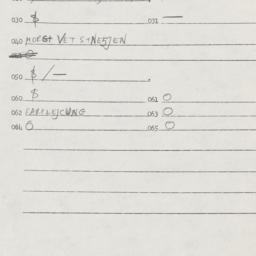 030 $ 031 —
040 MORGT VET STNESJEN
050 $ /—
060 $ 061 O
062 PARFLEJCUNG 063 O
064 O 065 O